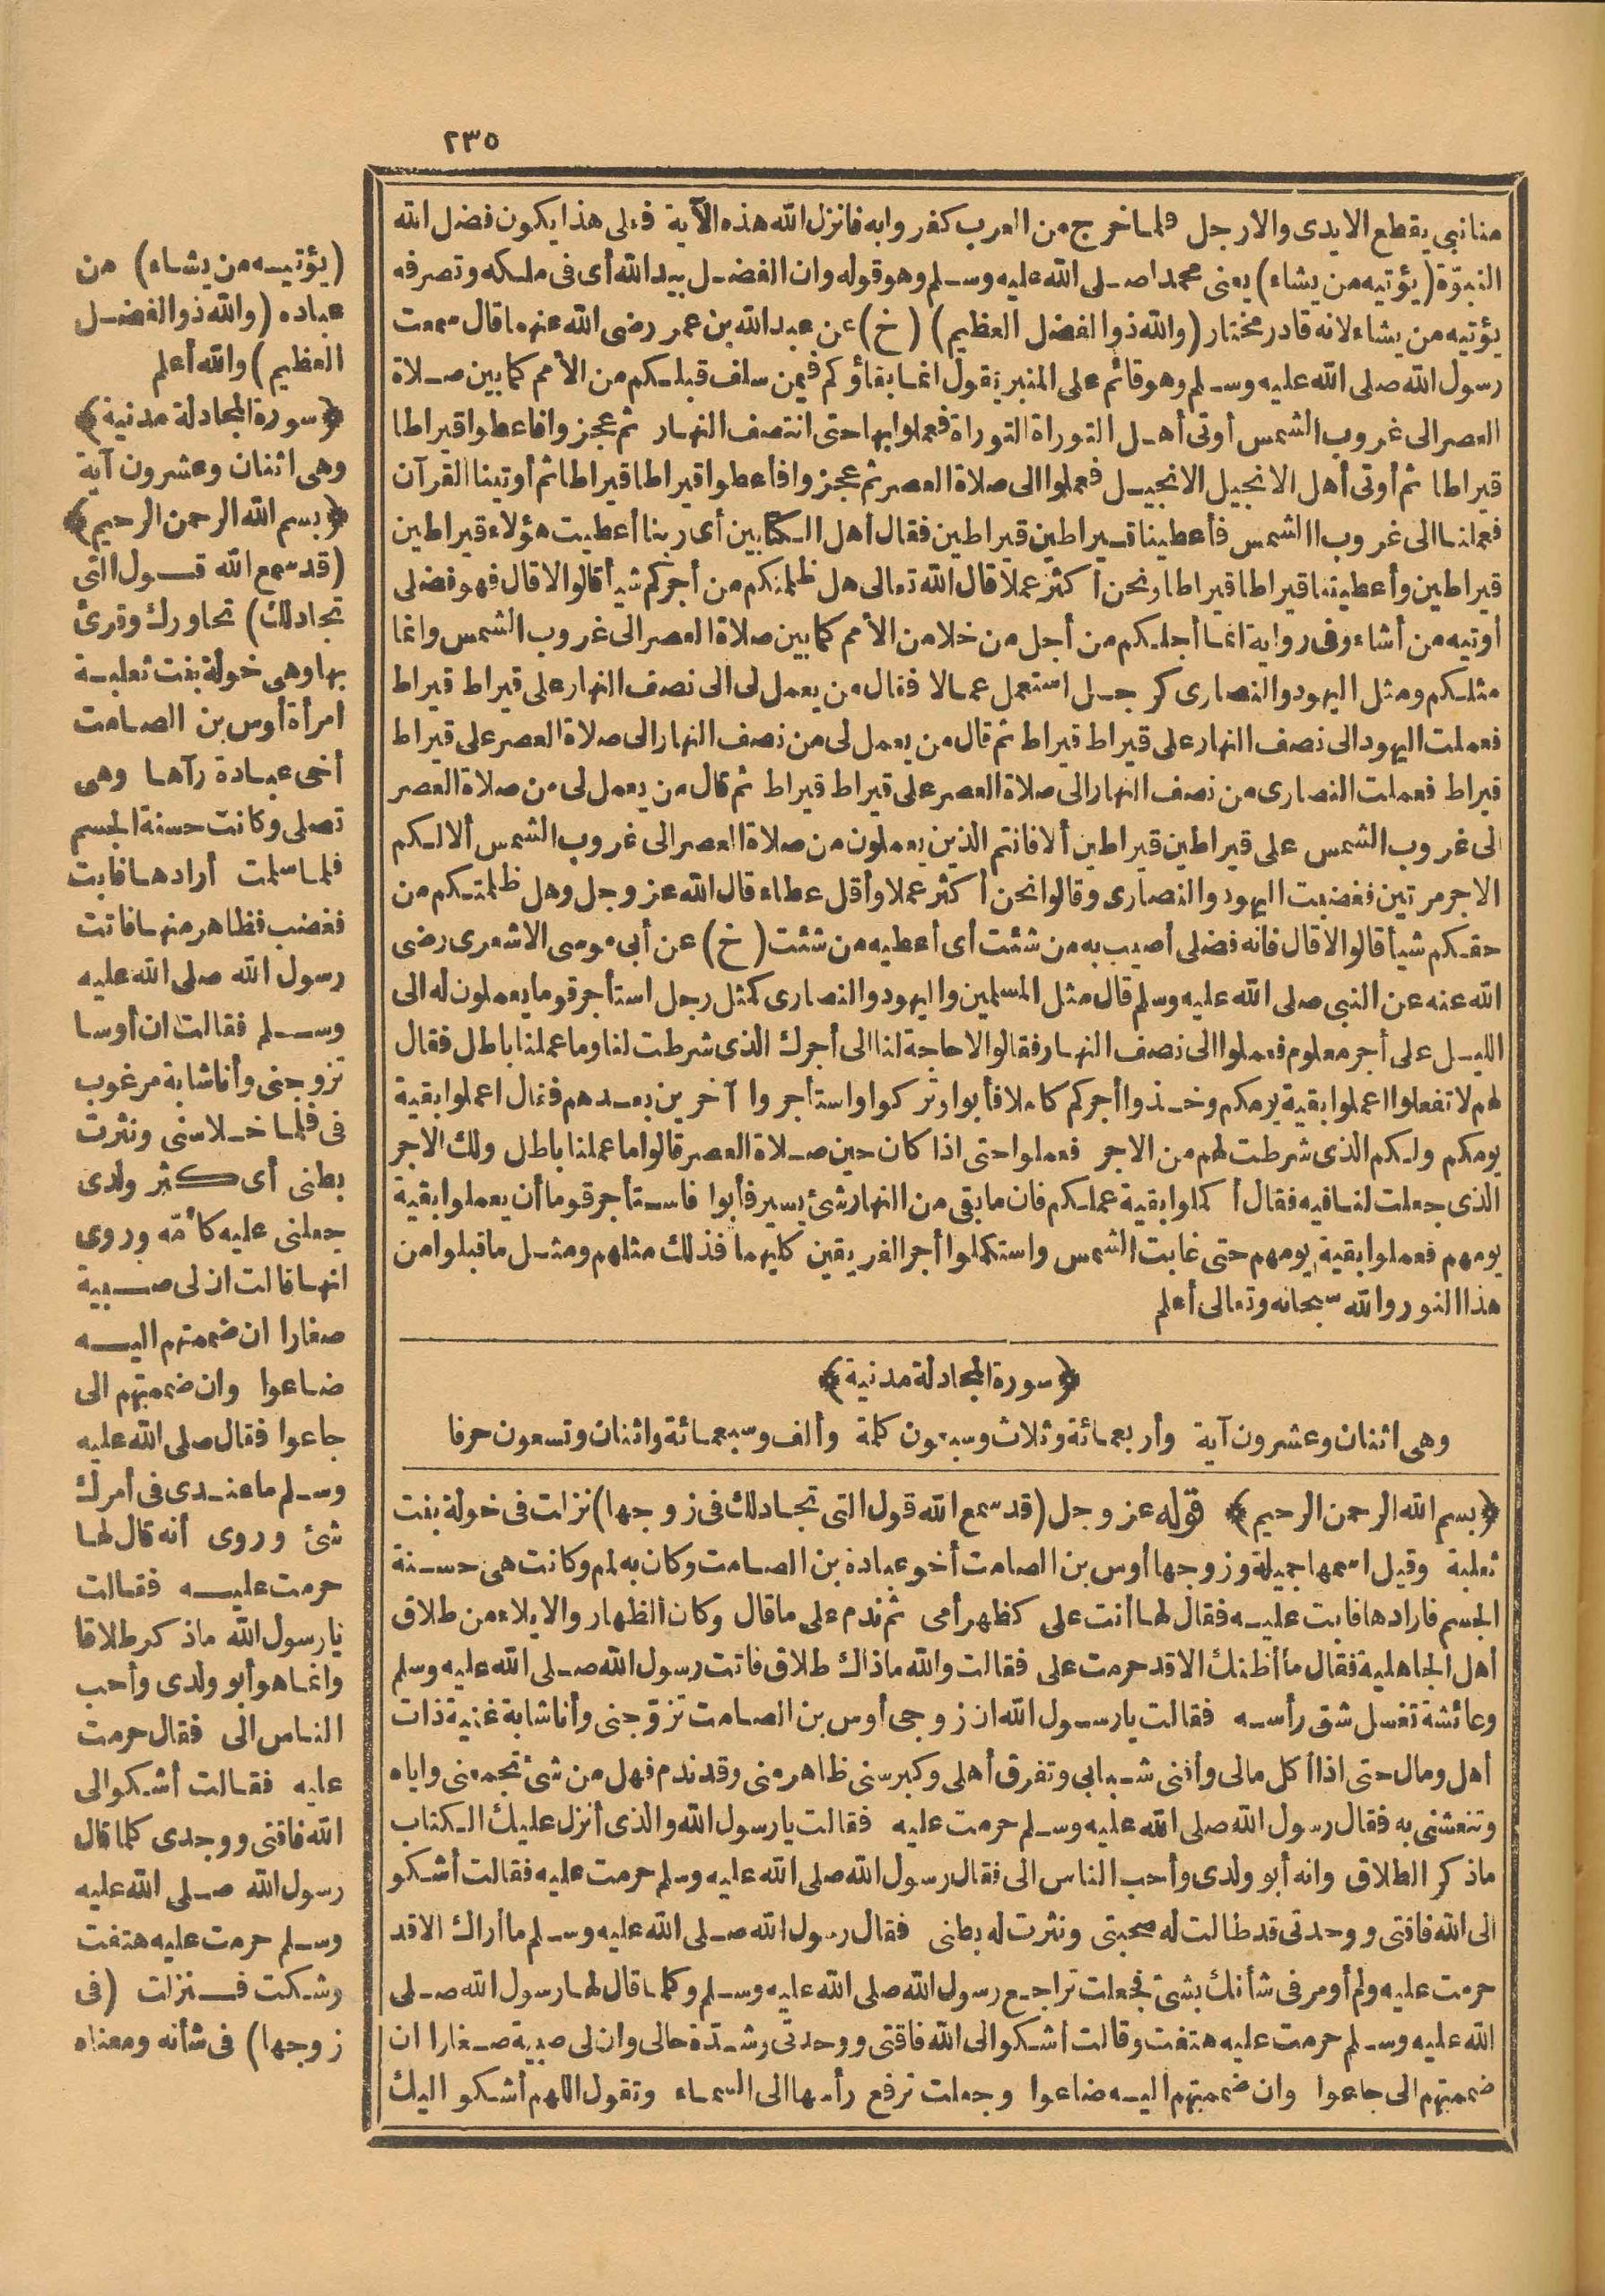 ٢٣٥
منا نبي يقطع الايدي والارجل فلما خرج من العرب كفروا به فانزل الله هذه الآية فعلى هذا يكون فضل الله
النبوّة (يؤتيه من يشاء) يعني محمدا صلى الله عليه وسلم وهو قوله وان الفضل بيد الله أى فى ملكه وتصرفه
يؤتيه من يشاء لانه قادر مختار (والله ذوالفضل العظيم) (خ) عن عبدالله بن عمر رضى الله عنهما قال سمعت
رسول الله صلى الله عليه وسلم وهو قائم على المنبر يقول انما بقاؤكم فيمن سلف قبلكم من الأمم كما بين صلاة
العصر الى غروب الشمس أوتى أهل التوراة التوراة فعملوا بها حتى انتصف النهار ثم عجزوا فاعطوا قيراطا
قيراطا ثم أوتى أهل الانجيل الانجيل فعملوا الى صلاة العصر ثم عجزوا فأعطوا قيراطا قيراطا ثم أوتينا القرآن
فعملنا الى غروب الشمس فأعطينا قيراطين قيراطين فقال أهل الكتابين أى ربنا أعطيت هؤلاء قيراطين
قيراطين وأعطيتنا قيراطا قيراطا ونحن أكثر عملا قال الله تعالى هل ظلمتكم من أجركم شيأ قالوا لا قال فهو فضلى
أوتيه من أشاء وفى رواية انما أجلكم من أجل من خلا من الأمم كما بين صلاة العصر الى غروب الشمس وانما
مثلكم ومثل اليهود والنصارى كرجل استعمل عمالا فقال من يعمل لى الى نصف النهار على قيراط قيراط
فعملت اليهود الى نصف النهار على قيراط قيراط ثم قال من يعمل لى من نصف النهار الى صلاة العصر على قيراط
قيراط فعملت النصارى من نصف النهار الى صلاة العصر على قيراط قيراط ثم قال من يعمل لى من صلاة العصر
الى غروب الشمس على قيراطين قيراطين ألا فانتم الذين يعملون من صلاة العصر الى غروب الشمس ألا لكم
الاجر مرتين فغضبت اليهود والنصارى وقالوا نحن أكثر عملا وأقل عطاء قال الله عز وجل وهل ظلمتكم من
حقكم شيأ قالوا لا قال فانه فضلى أصيب به من شئت أى أعطيه من شئت (خ) عن أبى موسى الاشعرى رضى
الله عنه عن النبى صلى الله عليه وسلم قال مثل المسلمين واليهود والنصارى كمثل رجل استأجر قوما يعملون له الى
الليل على أجر معلوم فعملوا الى نصف النهار فقالوا لا حاجة لنا الى أجرك الذى شرطت لنا وما عملنا باطل فقال
لهم لا تفعلوا اعملوا بقية يومكم وخذوا أجركم كاملا فأبوا وتركوا واستأجروا آخرين بعدهم فقال اعملوا بقية
يومكم ولكم الذى شرطت لهم من الاجر فعملوا حتى اذا كان حين صلاة العصر قالوا ما عملنا باطل ولك الاجر
الذى جعلت لنا فيه فقال أكملوا بقية عملكم فان ما بقى من النهار شئ يسير فأبوا فاستأجر قوما أن يعملوا بقية
يومهم فعملوا بقية يومهم حتى غابت الشمس واستكملوا أجر الفريقين كليهما فذلك مثلهم ومثل ما قبلوا من
هذا النور والله سبحانه وتعالى أعلم
﴿سورة المجادلة مدنية﴾
وهى اثنتان وعشرون آية وأربعمائة وثلاث وسبعون كلمة وألف وسبعمائة واثنان وتسعون حرفا
﴿بسم الله الرحمن الرحيم﴾ قوله عز وجل (قد سمع الله قول التى تجادلك فى زوجها) نزلت فى خولة بنت
ثعلبة وقيل اسمها جميلة وزوجها أوس بن الصامت أخو عبادة بن الصامت وكان به لمم وكانت هى حسنة
الجسم فارادها فابت عليه فقال لها أنت على كظهر أمى ثم ندم على ما قال وكان الظهار والايلاء من طلاق
أهل الجاهلية فقال ما أظنك الا قد حرمت على فقالت والله ماذاك طلاق فاتت رسول الله صلى الله عليه وسلم
وعائشة تغسل شق رأسه فقالت يا رسول الله ان زوجى أوس بن الصامت تزوّجنى وأنا شابة غنية ذات
أهل ومال حتى اذا أكل مالى وأفنى شبابى وتفرق أهلى وكبر سنى ظاهر منى وقد ندم فهل من شئ تجمعنى واياه
وتنعشنى به فقال رسول الله صلى الله عليه وسلم حرمت عليه فقالت يا رسول الله والذى أنزل عليك الكتاب
ما ذكر الطلاق وانه أبو ولدى وأحب الناس الى فقال رسول الله صلى الله عليه وسلم حرمت عليه فقالت أشكو
الى الله فاقتى ووحدتى قد طالت له صحبتى ونثرت له بطنى فقال رسول الله صلى الله عليه وسلم ما أراك الا قد
حرمت عليه ولم أومر فى شأنك بشئ فجعلت تراجع رسول الله صلى الله عليه وسلم وكلما قال لها رسول الله صلى
الله عليه وسلم حرمت عليه هتفت وقالت أشكو الى الله فاقتى ووحدتى وشدّة حالى وان لى صبية صغارا ان
ضممتهم الى جاعوا وان ضممتهم اليه ضاعوا وجعلت ترفع رأسها الى السماء وتقول اللهم أشكو اليك
(يؤتيه من يشاء) من
عباده (والله ذو الفضل
العظيم) والله أعلم
﴿سورة المجادلة مدنية﴾
وهى اثنتان وعشرون آية
﴿بسم الله الرحمن الرحيم﴾
(قد سمع الله قول التى
تجادلك) تحاورك وقرئ
بها وهى خولة بنت ثعلبة
امرأة أوس بن الصامت
أخى عبادة رآها وهى
تصلى وكانت حسنة الجسم
فلما سلمت أرادها فابت
فغضب فظاهر منها فاتت
رسول الله صلى الله عليه
وسلم فقالت ان أوسا
تزوجنى وأنا شابة مرغوب
فى فلما خلا سنى ونثرت
بطنى أى كثر ولدى
جعلنى عليه كأمّه وروى
انها قالت ان لى صبية
صغارا ان ضممتهم اليه
ضاعوا وان ضممتهم الى
جاعوا فقال صلى الله عليه
وسلم ما عندى فى أمرك
شئ وروى أنه قال لها
حرمت عليه فقالت
يا رسول الله ماذكر طلاقا
وانما هو أبو ولدى وأحب
الناس الى فقال حرمت
عليه فقالت أشكو الى
الله فاقتى ووجدى كلما قال
رسول الله صلى الله عليه
وسلم حرمت عليه هتفت
وشكت فنزلت (فى
زوجها) فى شأنه ومعناه